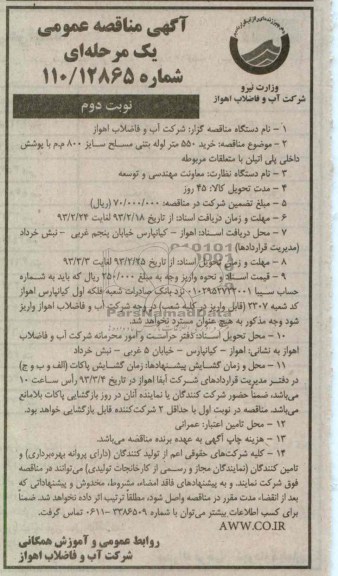 آگهی مناقصه عمومی
یک مرحله‌ای
شماره ۱۱۰/۱۲۸۶۵
وزارت نیرو
شرکت آب و فاضلاب اهواز
نوبت دوم
۱ - نام دستگاه مناقصه گزار: شرکت آب و فاضلاب اهواز
۲ - موضوع مناقصه: خرید ۵۵۰ متر لوله بتنی مسلح سایز ۸۰۰ م.م با پوشش
داخلی پلی اتیلن با متعلقات مربوطه
۳ - نام دستگاه نظارت: معاونت مهندسی و توسعه
۴ - مدت تحویل کالا: ۴۵ روز
۵ - مبلغ تضمین شرکت در مناقصه: ۷۰/۰۰۰/۰۰۰ (ریال)
۶ - مهلت و زمان دریافت اسناد: از تاریخ ۹۳/۲/۱۸ لغایت ۹۳/۲/۲۴
۷ - محل دریافت اسناد: اهواز - کیانپارس خیابان پنجم غربی - نبش خرداد
(مدیریت قراردادها)
۸ - مهلت و زمان تحویل اسناد: از تاریخ ۹۳/۲/۲۵ لغایت ۹۳/۳/۳
۹ - قیمت اسناد و نحوه واریز وجه به مبلغ ۲۵۰/۰۰۰ ریال که باید به شماره
حساب سیبا نزد بانک صادرات شعبه فلکه اول کیانپارس اهواز
کد شعبه ۲۳۰۷ (قابل واریز در کلیه شعب) در وجه شرکت آب و فاضلاب اهواز واریز
شود وجه مذکور به هیچ عنوان مسترد نخواهد شد.
ParsNamadData
۱۰ - محل تحویل اسناد: دفتر حراست و امور محرمانه شرکت آب و فاضلاب
اهواز به نشانی: اهواز - کیانپارس - خیابان ۵ غربی - نبش خرداد
۱۱ - محل و زمان گشایش پیشنهادها: زمان گشایش پاکات (الف و ب و ج)
در دفتر مدیریت قراردادهای شرکت آبفا اهواز در تاریخ ۹۳/۳/۴ رأس ساعت ۱۰
می‌باشد، ضمناً حضور شرکت کنندگان یا نماینده آنان در روز بازگشایی پاکات بلامانع
می‌باشد. مناقصه در نوبت اول با حداقل ۲ شرکت‌کننده قابل بازگشایی خواهد بود.
۱۲ - محل تامین اعتبار: عمرانی
۱۳ - هزینه چاپ آگهی به عهده برنده مناقصه می‌باشد.
۱۴ - کلیه شرکت‌های حقوقی اعم از تولید کنندگان (دارای پروانه بهره‌برداری) و
تامین کنندگان (نمایندگان مجاز و رسمی از کارخانجات تولیدی) می‌توانند در مناقصه
فوق شرکت نمایند. و به پیشنهادهای فاقد امضاء، مشروط، مخدوش و پیشنهاداتی که
بعد از انقضاء مدت مقرر در مناقصه واصل شود، مطلقاً ترتیب اثر داده نخواهد شد. ضمناً
برای کسب اطلاعات بیشتر می‌توان با شماره ۳۳۸۶۵۰۹-۰۶۱۱ تماس گرفت.
AWW.CO.IR
روابط عمومی و آموزش همگانی
شرکت آب و فاضلاب اهواز